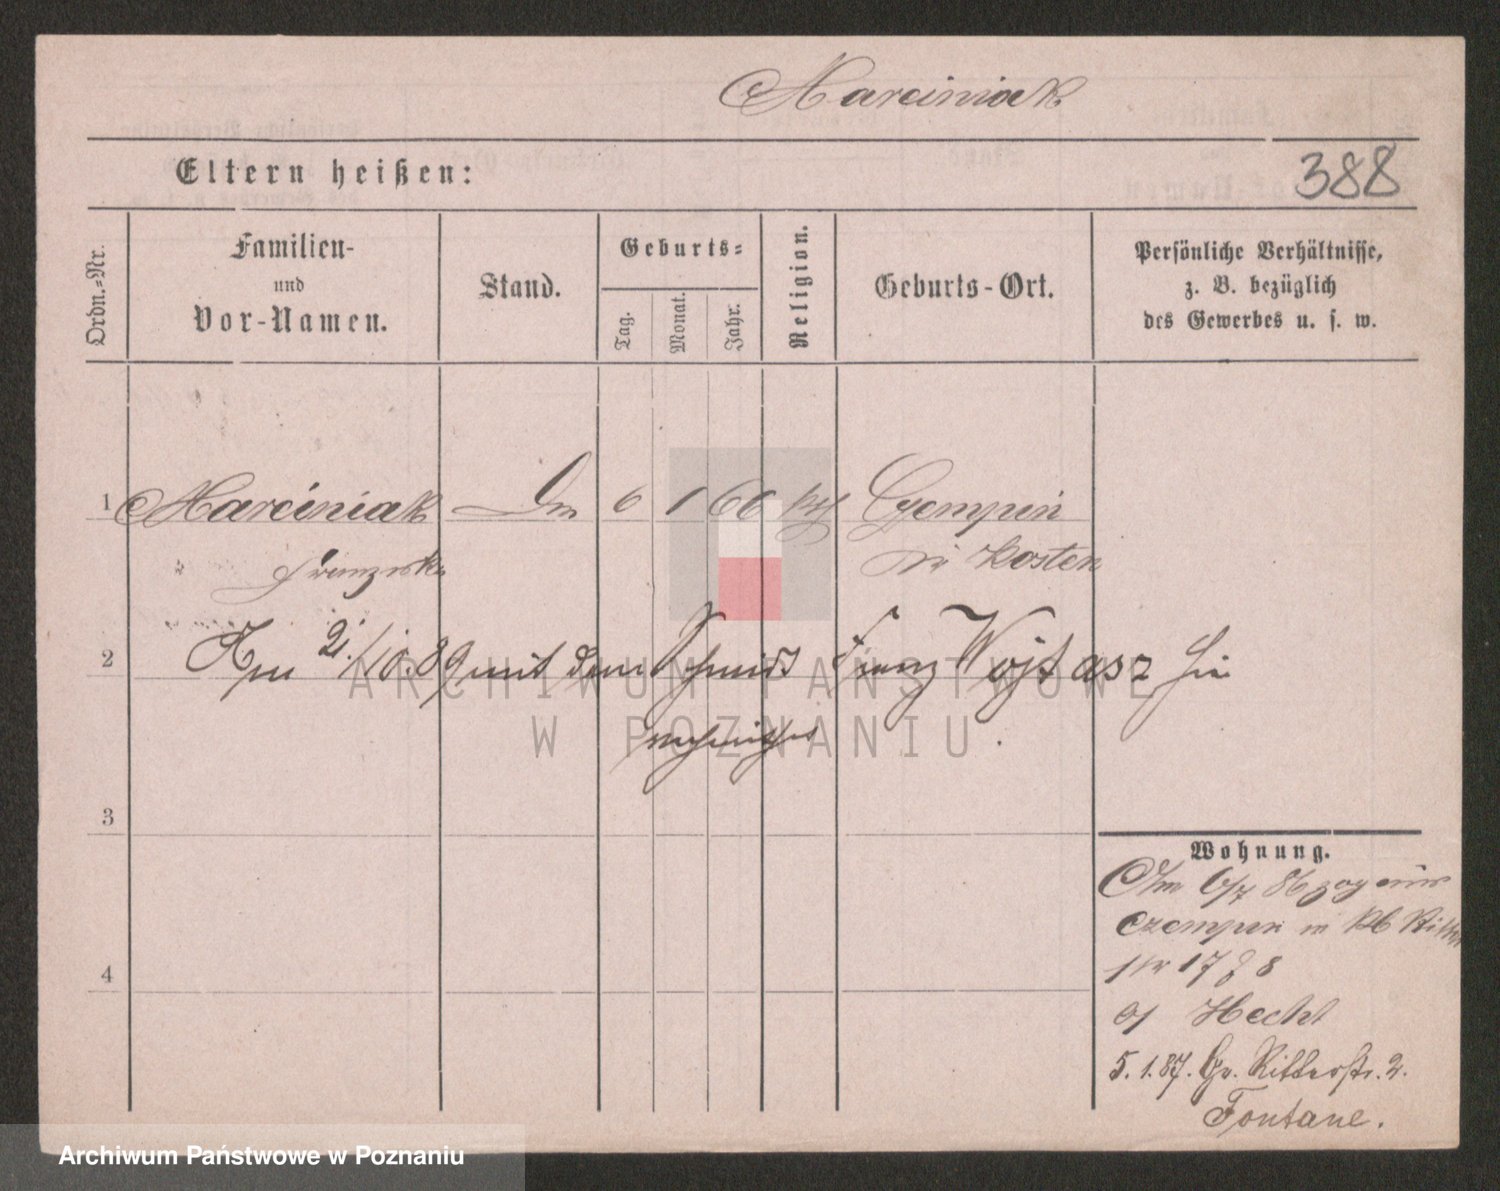 Marciniak
Eltern heißen:
388
Ordn.-Nr.
Familien-
und
Vor-Namen.
Stand.
Geburts-
Tag.
Monat.
Jahr.
Religion.
Geburts-Ort.
Persönliche Verhältnisse,
z. B. bezüglich
des Gewerbes u. s. w.
1 Marciniak 6 1 66 kth Czempin
Franziska Kosten
2 Am 21/10.89 mit dem Schmidt Franz Wojtasz hie
3
4
Wohnung.
Am 6/7 86 zog aus
Czempin in
17 8
Hecht
5.1.87. Gr. Ritterstr. 2.
Fontane.
ARCHIWUM PAŃSTWOWE
W POZNANIU
Archiwum Państwowe w Poznaniu